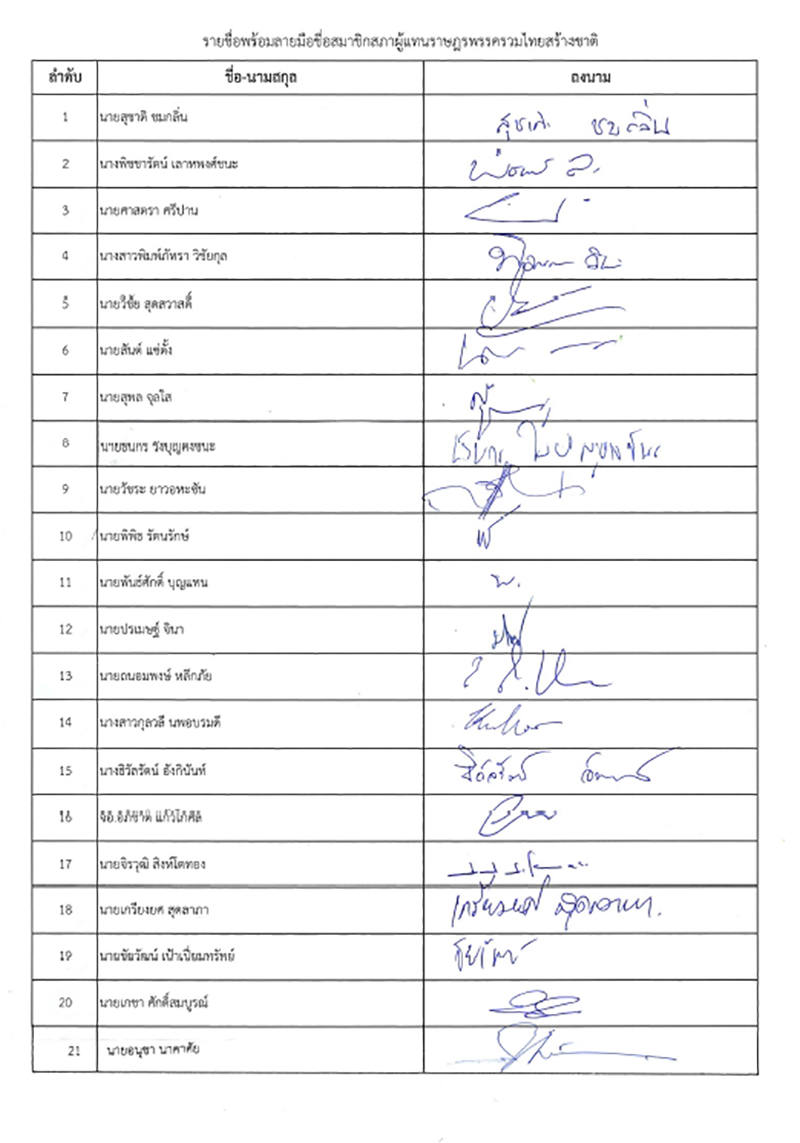 รายชื่อพร้อมลายมือชื่อสมาชิกสภาผู้แทนราษฎรพรรครวมไทยสร้างชาติ
ลำดับ ชื่อ-นามสกุล ลงนาม
1 นายสุชาติ ชมกลิ่น สุชาติ ชมกลิ่น
2 นางพิชชารัตน์ เลาหพงศ์ชนะ
3 นายศาสตรา ศรีปาน
4 นางสาวพิมพ์ภัทรา วิชัยกุล
5 นายวิชัย สุดสวาสดิ์
6 นายสันต์ แซ่ตั้ง
7 นายสุพล จุลใส
8 นายธนกร วังบุญคงชนะ
9 นายวัชระ ยาวอหะซัน
10 นายพิพิธ รัตนรักษ์
11 นายพันธ์ศักดิ์ บุญแทน พ.
12 นายปรเมษฐ์ จินา
13 นายถนอมพงษ์ หลีกภัย
14 นางสาวกุลวลี นพอมรบดี
15 นางธิวัลรัตน์ อังกินันทน์
16 จ.อ.อภิชาติ แก้วโกศล
17 นายจิรวุฒิ สิงห์โตทอง
18 นายเกรียงยศ สุดลาภา เกรียงยศ สุดลาภา
19 นายชัยวัฒน์ เป้าเปี่ยมทรัพย์ ชัยวัฒน์
20 นายเกชา ศักดิ์สมบูรณ์
21 นายอนุชา นาคาศัย